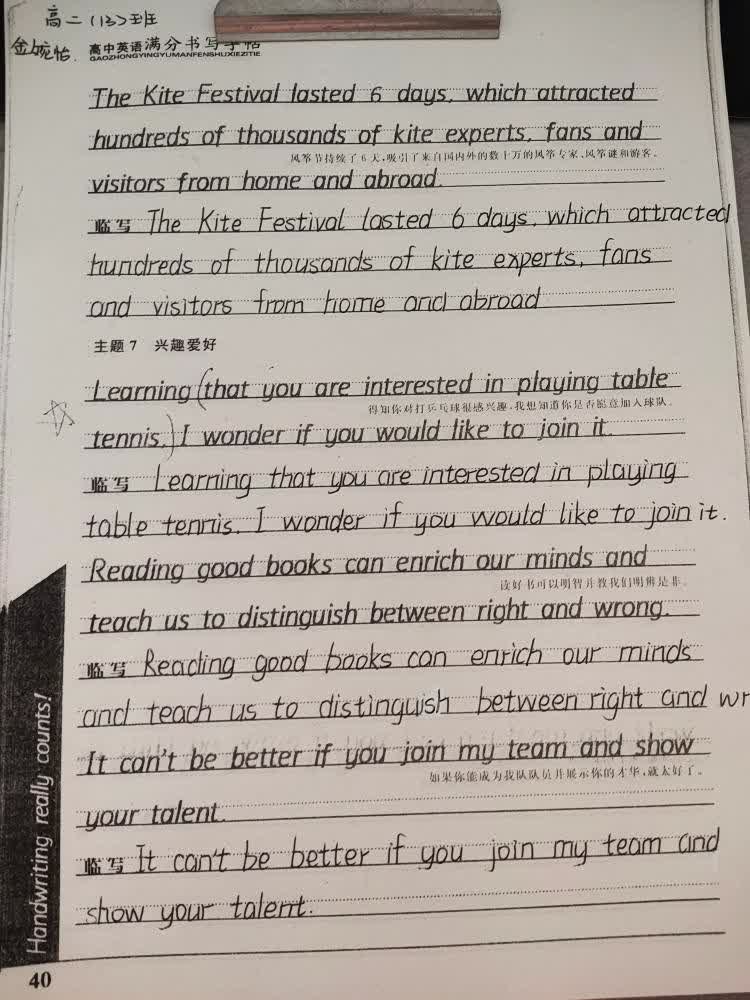 高二(13)班
金婉怡.
高中英语满分书写字帖
GAOZHONGYINGYUMANFENSHUXIEZITIE
The Kite Festival lasted 6 days, which attracted
hundreds of thousands of kite experts, fans and
风筝节持续了6天,吸引了来自国内外的数十万的风筝专家、风筝谜和游客。
visitors from home and abroad.
临写 The Kite Festival lasted 6 days, which attracted
hundreds of thousands of kite experts, fans
and visitors from home and abroad
主题7 兴趣爱好
Learning (that you are interested in playing table
得知你对打乒乓球很感兴趣,我想知道你是否愿意加入球队。
tennis,) I wonder if you would like to join it.
临写 Learning that you are interested in playing
table tennis, I wonder if you would like to join it.
Reading good books can enrich our minds and
读好书可以明智并教我们明辨是非。
teach us to distinguish between right and wrong.
临写 Reading good books can enrich our minds
and teach us to distinguish between right and wr
It can't be better if you join my team and show
如果你能成为我队队员并展示你的才华,就太好了。
your talent.
临写 It can't be better if you join my team and
show your talent.
Handwriting really counts!
40